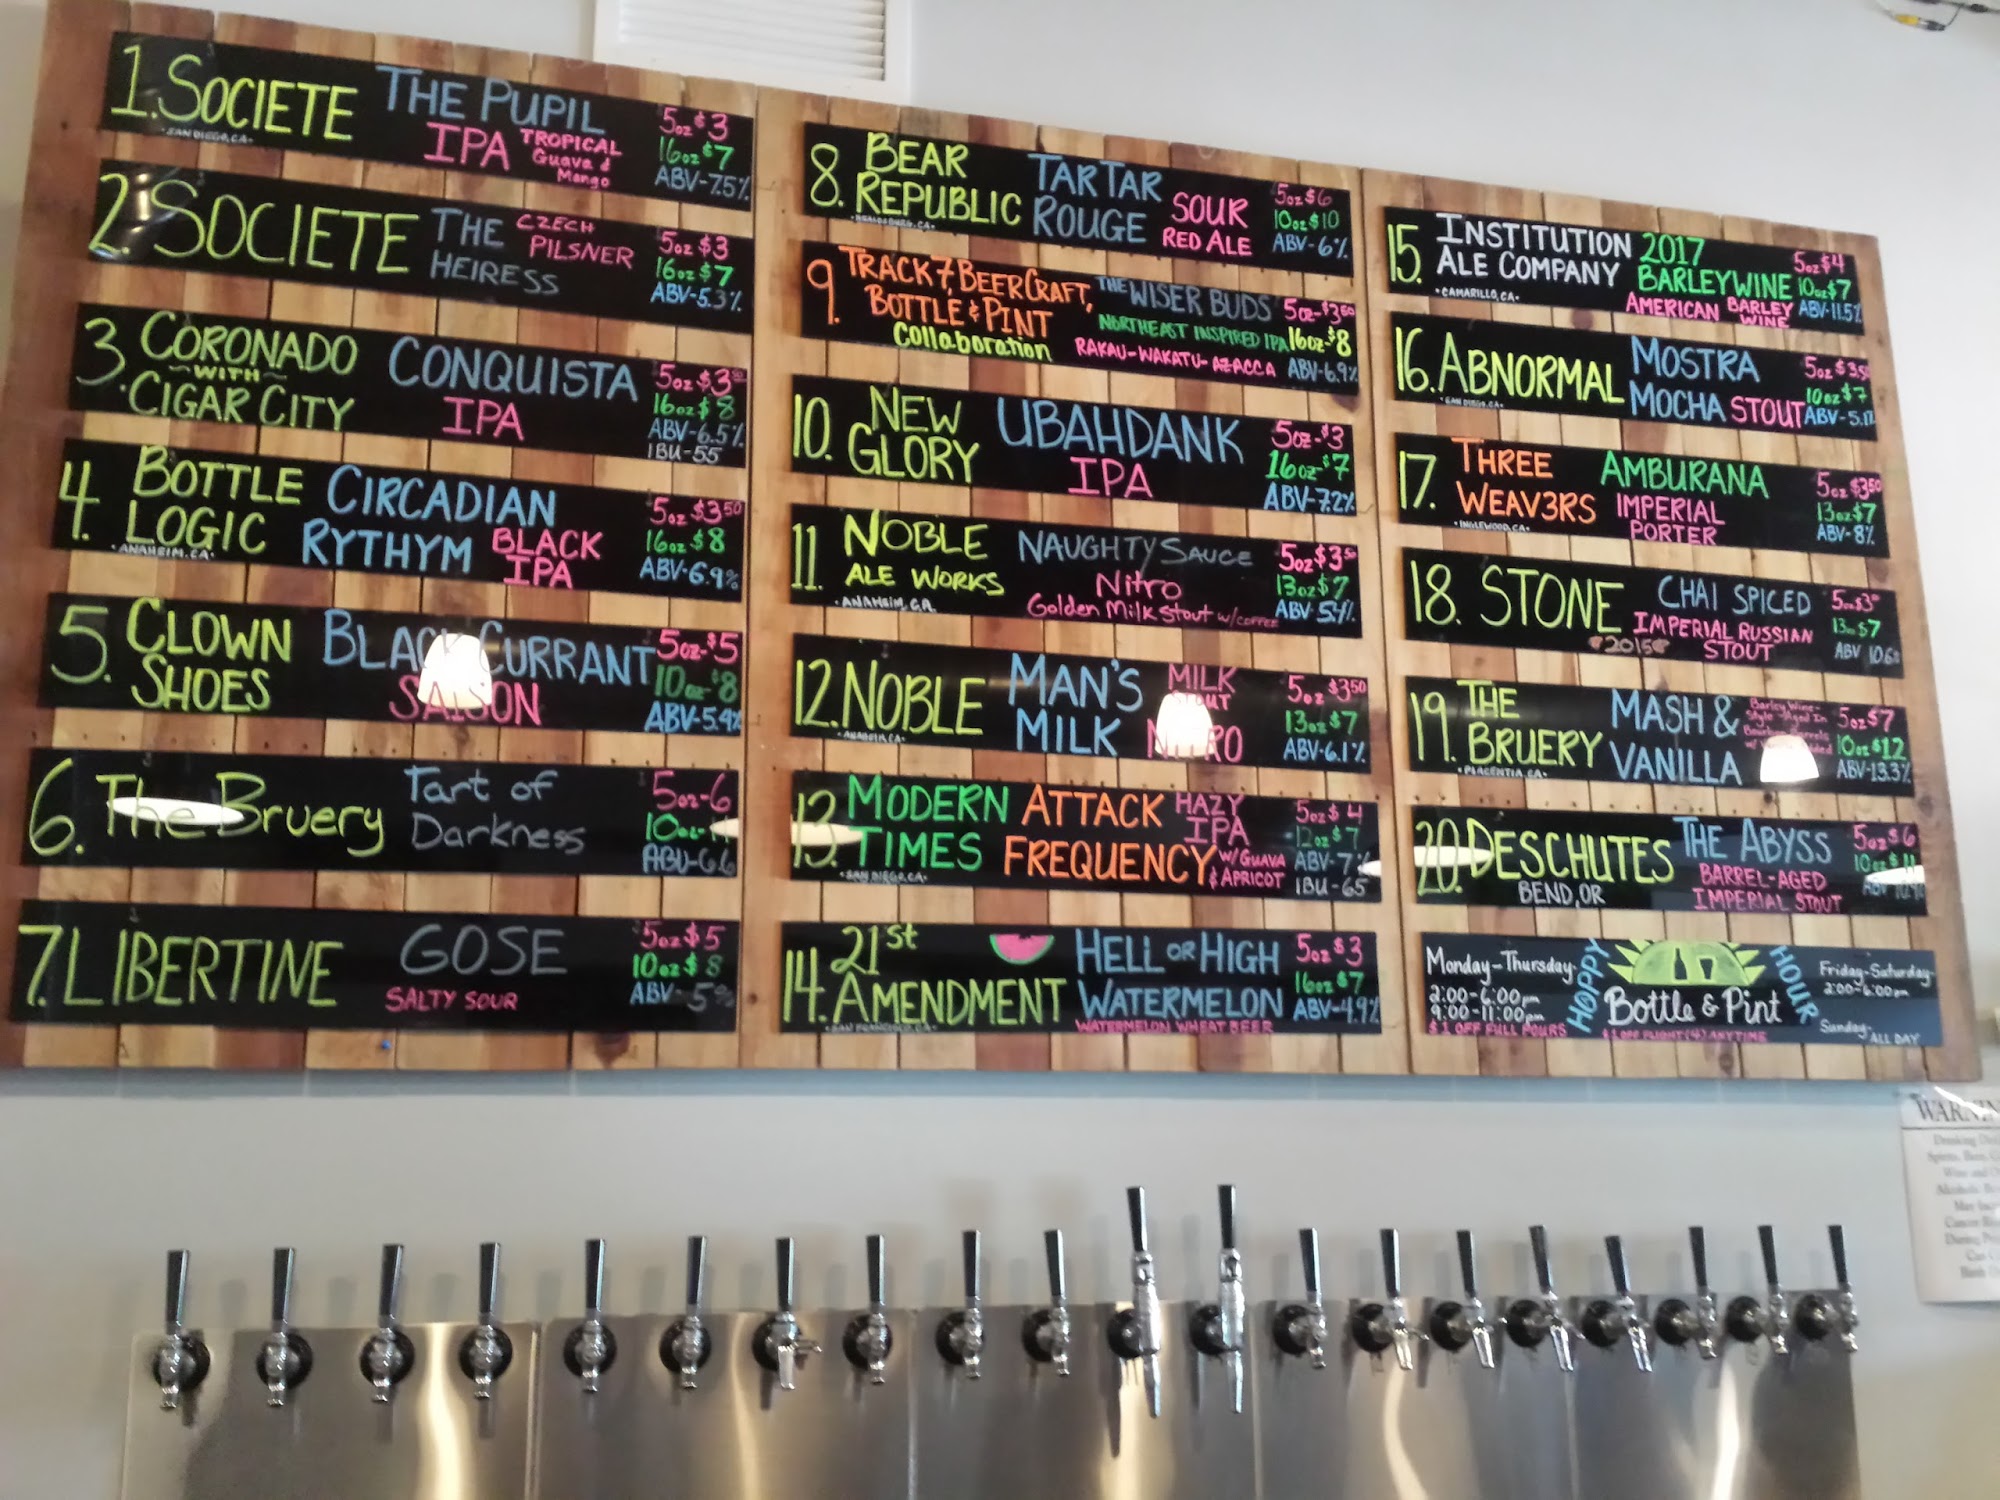 1. SOCIETE THE PUPIL 5oz $3
IPA TROPICAL Guava & Mango 16oz $7
SAN DIEGO, CA. ABV-7.5%
2. SOCIETE THE HEIRESS CZECH PILSNER 5oz $3
16oz $7
ABV-5.3%
3. CORONADO CONQUISTA 5oz $3⁵⁰
~WITH~ IPA 16oz $8
CIGAR CITY ABV-6.5%
IBU-55
4. BOTTLE CIRCADIAN 5oz $3⁵⁰
LOGIC RYTHYM BLACK IPA 16oz $8
ANAHEIM, CA ABV-6.9%
5. CLOWN BLACK CURRANT 5oz-$5
SHOES SAISON 10oz-$8
ABV-5.9%
6. The Bruery Tart of 5oz-6
Darkness 10oz-11
ABV-6.6
7. LIBERTINE GOSE 5oz $5
SALTY SOUR 10oz $8
ABV-5%
8. BEAR TARTAR 5oz $6
REPUBLIC ROUGE SOUR RED ALE 10oz $10
ABV-6%
9. TRACK 7, BEERCRAFT, THE WISER BUDS 5oz-$3⁵⁰
BOTTLE & PINT NORTHEAST INSPIRED IPA 16oz-$8
Collaboration RAKAU-WAKATU-AZACCA ABV-6.9%
10. NEW UBAHDANK 5oz-$3
GLORY IPA 16oz-$7
ABV-7.2%
11. NOBLE NAUGHTY SAUCE 5oz $3⁵⁰
ALE WORKS Nitro 13oz $7
·ANAHEIM, CA. Golden Milk Stout w/COFFEE ABV 5.4%
12. NOBLE MAN'S MILK STOUT 5oz $3⁵⁰
MILK NITRO 13oz $7
ANAHEIM, CA. ABV-6.1%
13. MODERN ATTACK HAZY IPA 5oz $4
TIMES FREQUENCY W/GUAVA & APRICOT 12oz $7
·SAN DIEGO, CA· ABV-7%
IBU-65
14. 21st HELL OR HIGH 5oz $3
AMENDMENT WATERMELON 16oz $7
·SAN FRANCISCO, CA· WATERMELON WHEAT BEER ABV-4.9%
15. INSTITUTION 2017 5oz $4
ALE COMPANY BARLEYWINE 10oz $7
·CAMARILLO, CA· AMERICAN BARLEY WINE ABV-11.5%
16. ABNORMAL MOSTRA 5oz $3.50
SAN DIEGO, CA MOCHA STOUT 10oz $7
ABV-5.1%
17. THREE AMBURANA 5oz $3⁵⁰
WEAV3RS IMPERIAL 13oz $7
·INGLEWOOD, CA· PORTER ABV-8%
18. STONE CHAI SPICED 5oz $3⁵⁰
IMPERIAL RUSSIAN 13oz $7
2015 STOUT ABV 10.6%
19. THE MASH & Barley Wine- Style-Aged In Bourbon Barrels 5oz $7
BRUERY VANILLA 10oz $12
·PLACENTIA, CA· ABV-13.3%
20. DESCHUTES THE ABYSS 5oz $6
BEND, OR BARREL-AGED 10oz $11
IMPERIAL STOUT ABV
Monday-Thursday
2:00-6:00pm
9:00-11:00pm
$1 OFF FULL POURS
HOPPY HOUR
Bottle & Pint
$1 OFF FLIGHT (4) ANYTIME
Friday-Saturday-
2:00-6:00pm
Sunday-
ALL DAY
WARNIN